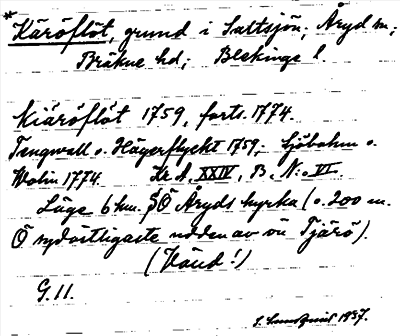 * Käröflöt, grund i Saltsjön, Åryd sn;
Bräkne hd; Blekinge l.
Kiäröflöt 1759, forts. 1774.
Tengwall o. Hägerflyckt 1759; Sjöbohm o.
Wolin 1774. Kr A, XXIV, B, N:o VI.
Läge 6 km. SÖ Åryds kyrka (c. 200 m.
Ö sydostligaste udden av ön Tjärö).
(Vänd!)
G. 11.
1937.